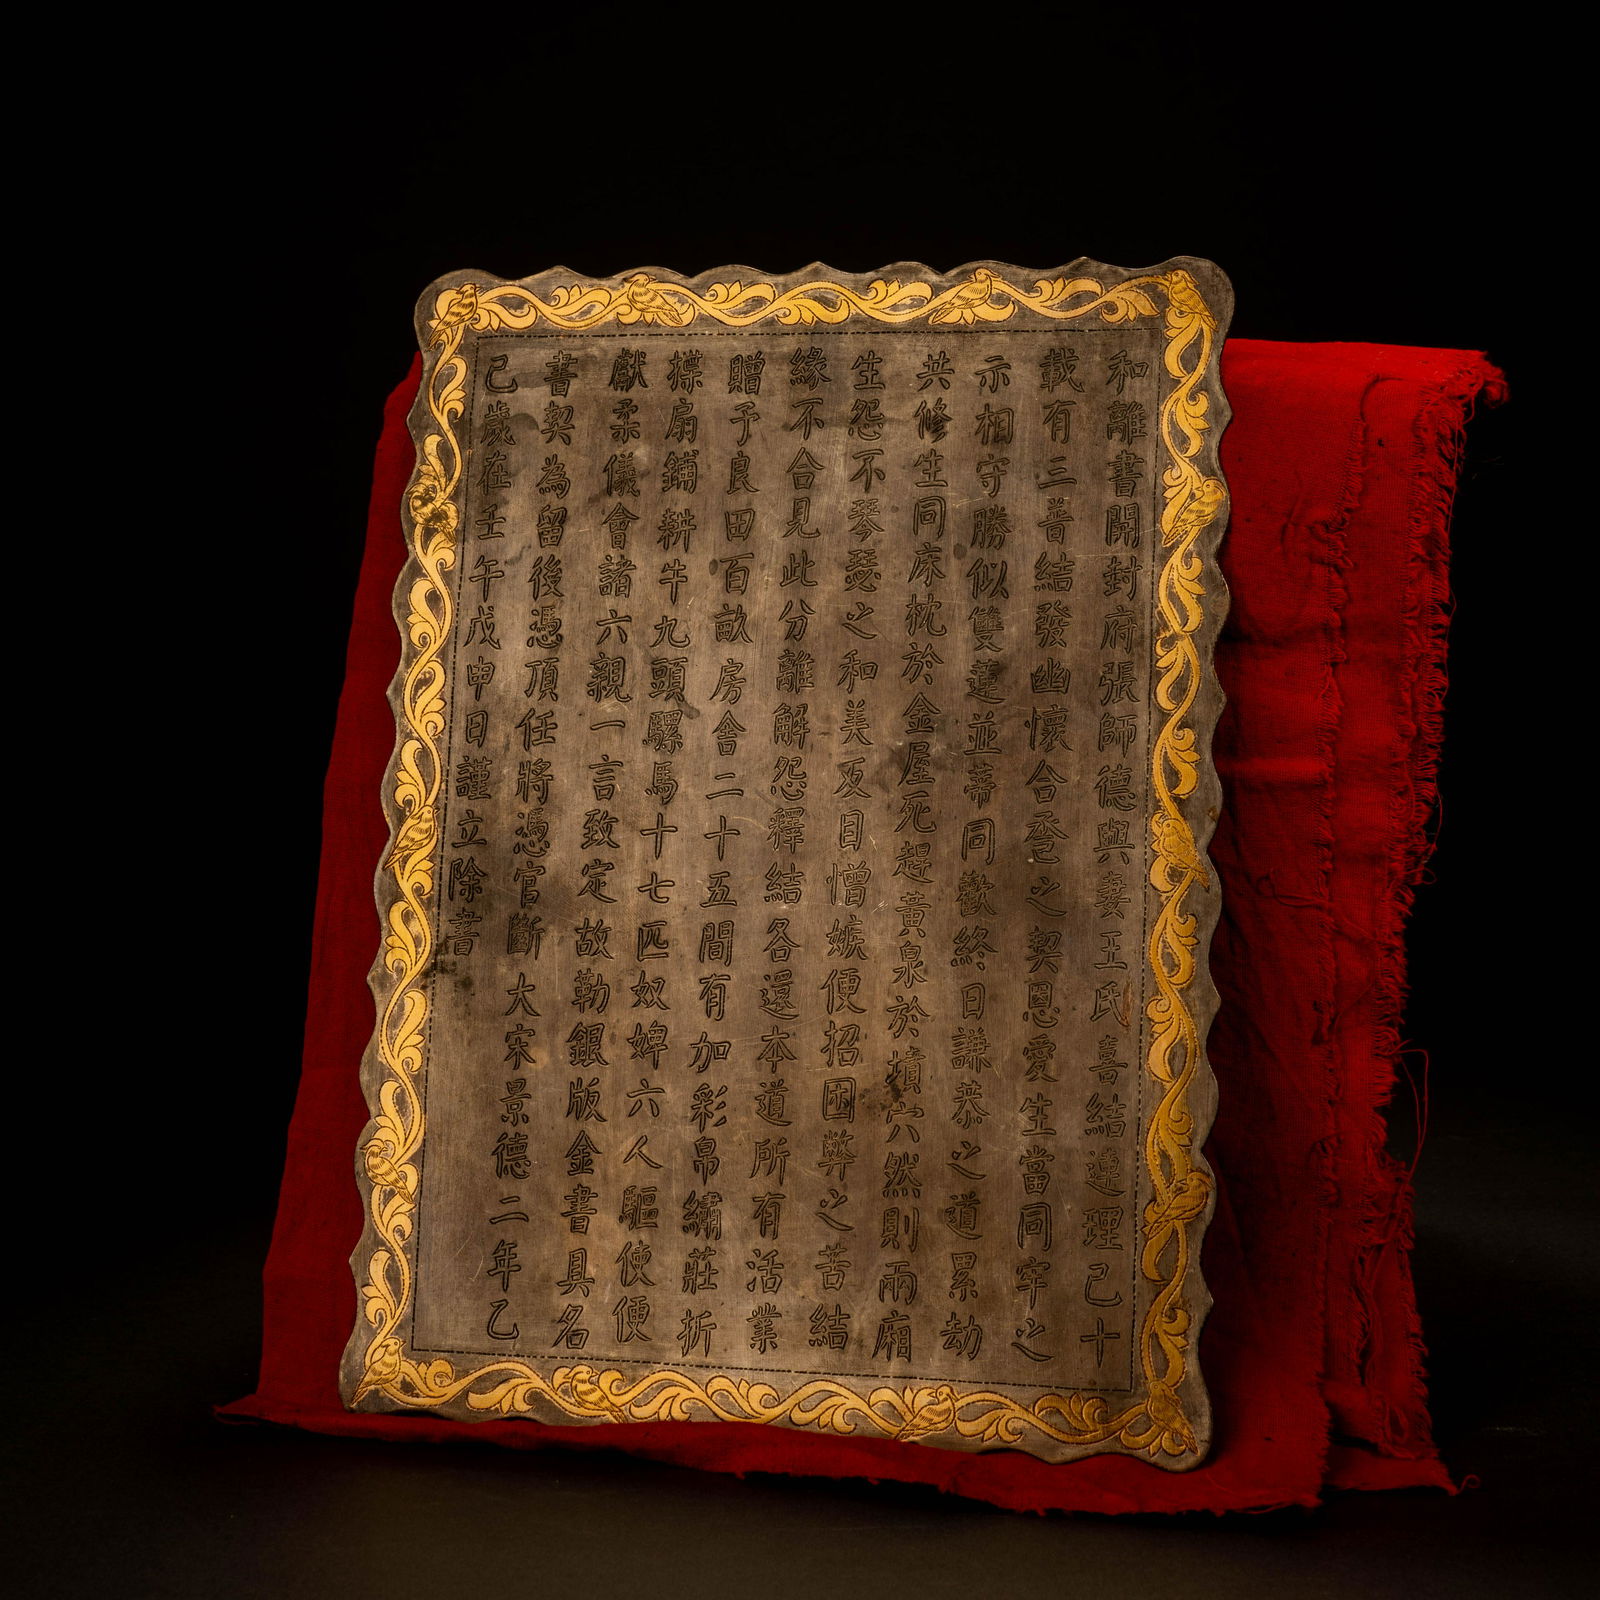 和離書開封府張師德與妻王氏喜結連理已十
載有三普結發幽懷合巹之契恩愛生當同牢之
示相守勝似雙蓮並蒂同歡終日謙恭之道累劫
共修生同床枕於金屋死趕黃泉於墳穴然則兩廂
生怨不琴瑟之和美反目憎嫉便招困弊之苦結
緣不合見此分離解怨釋結各還本道所有活業
贈予良田百畝房舍二十五間有加彩帛繡莊折
揲扇鋪耕牛九頭騾馬十七匹奴婢六人驅使便
獻柔儀會諸六親一言致定故勒銀版金書具名
書契為留後憑頂任將憑官斷大宋景德二年乙
己歲在壬午戊申日謹立除書